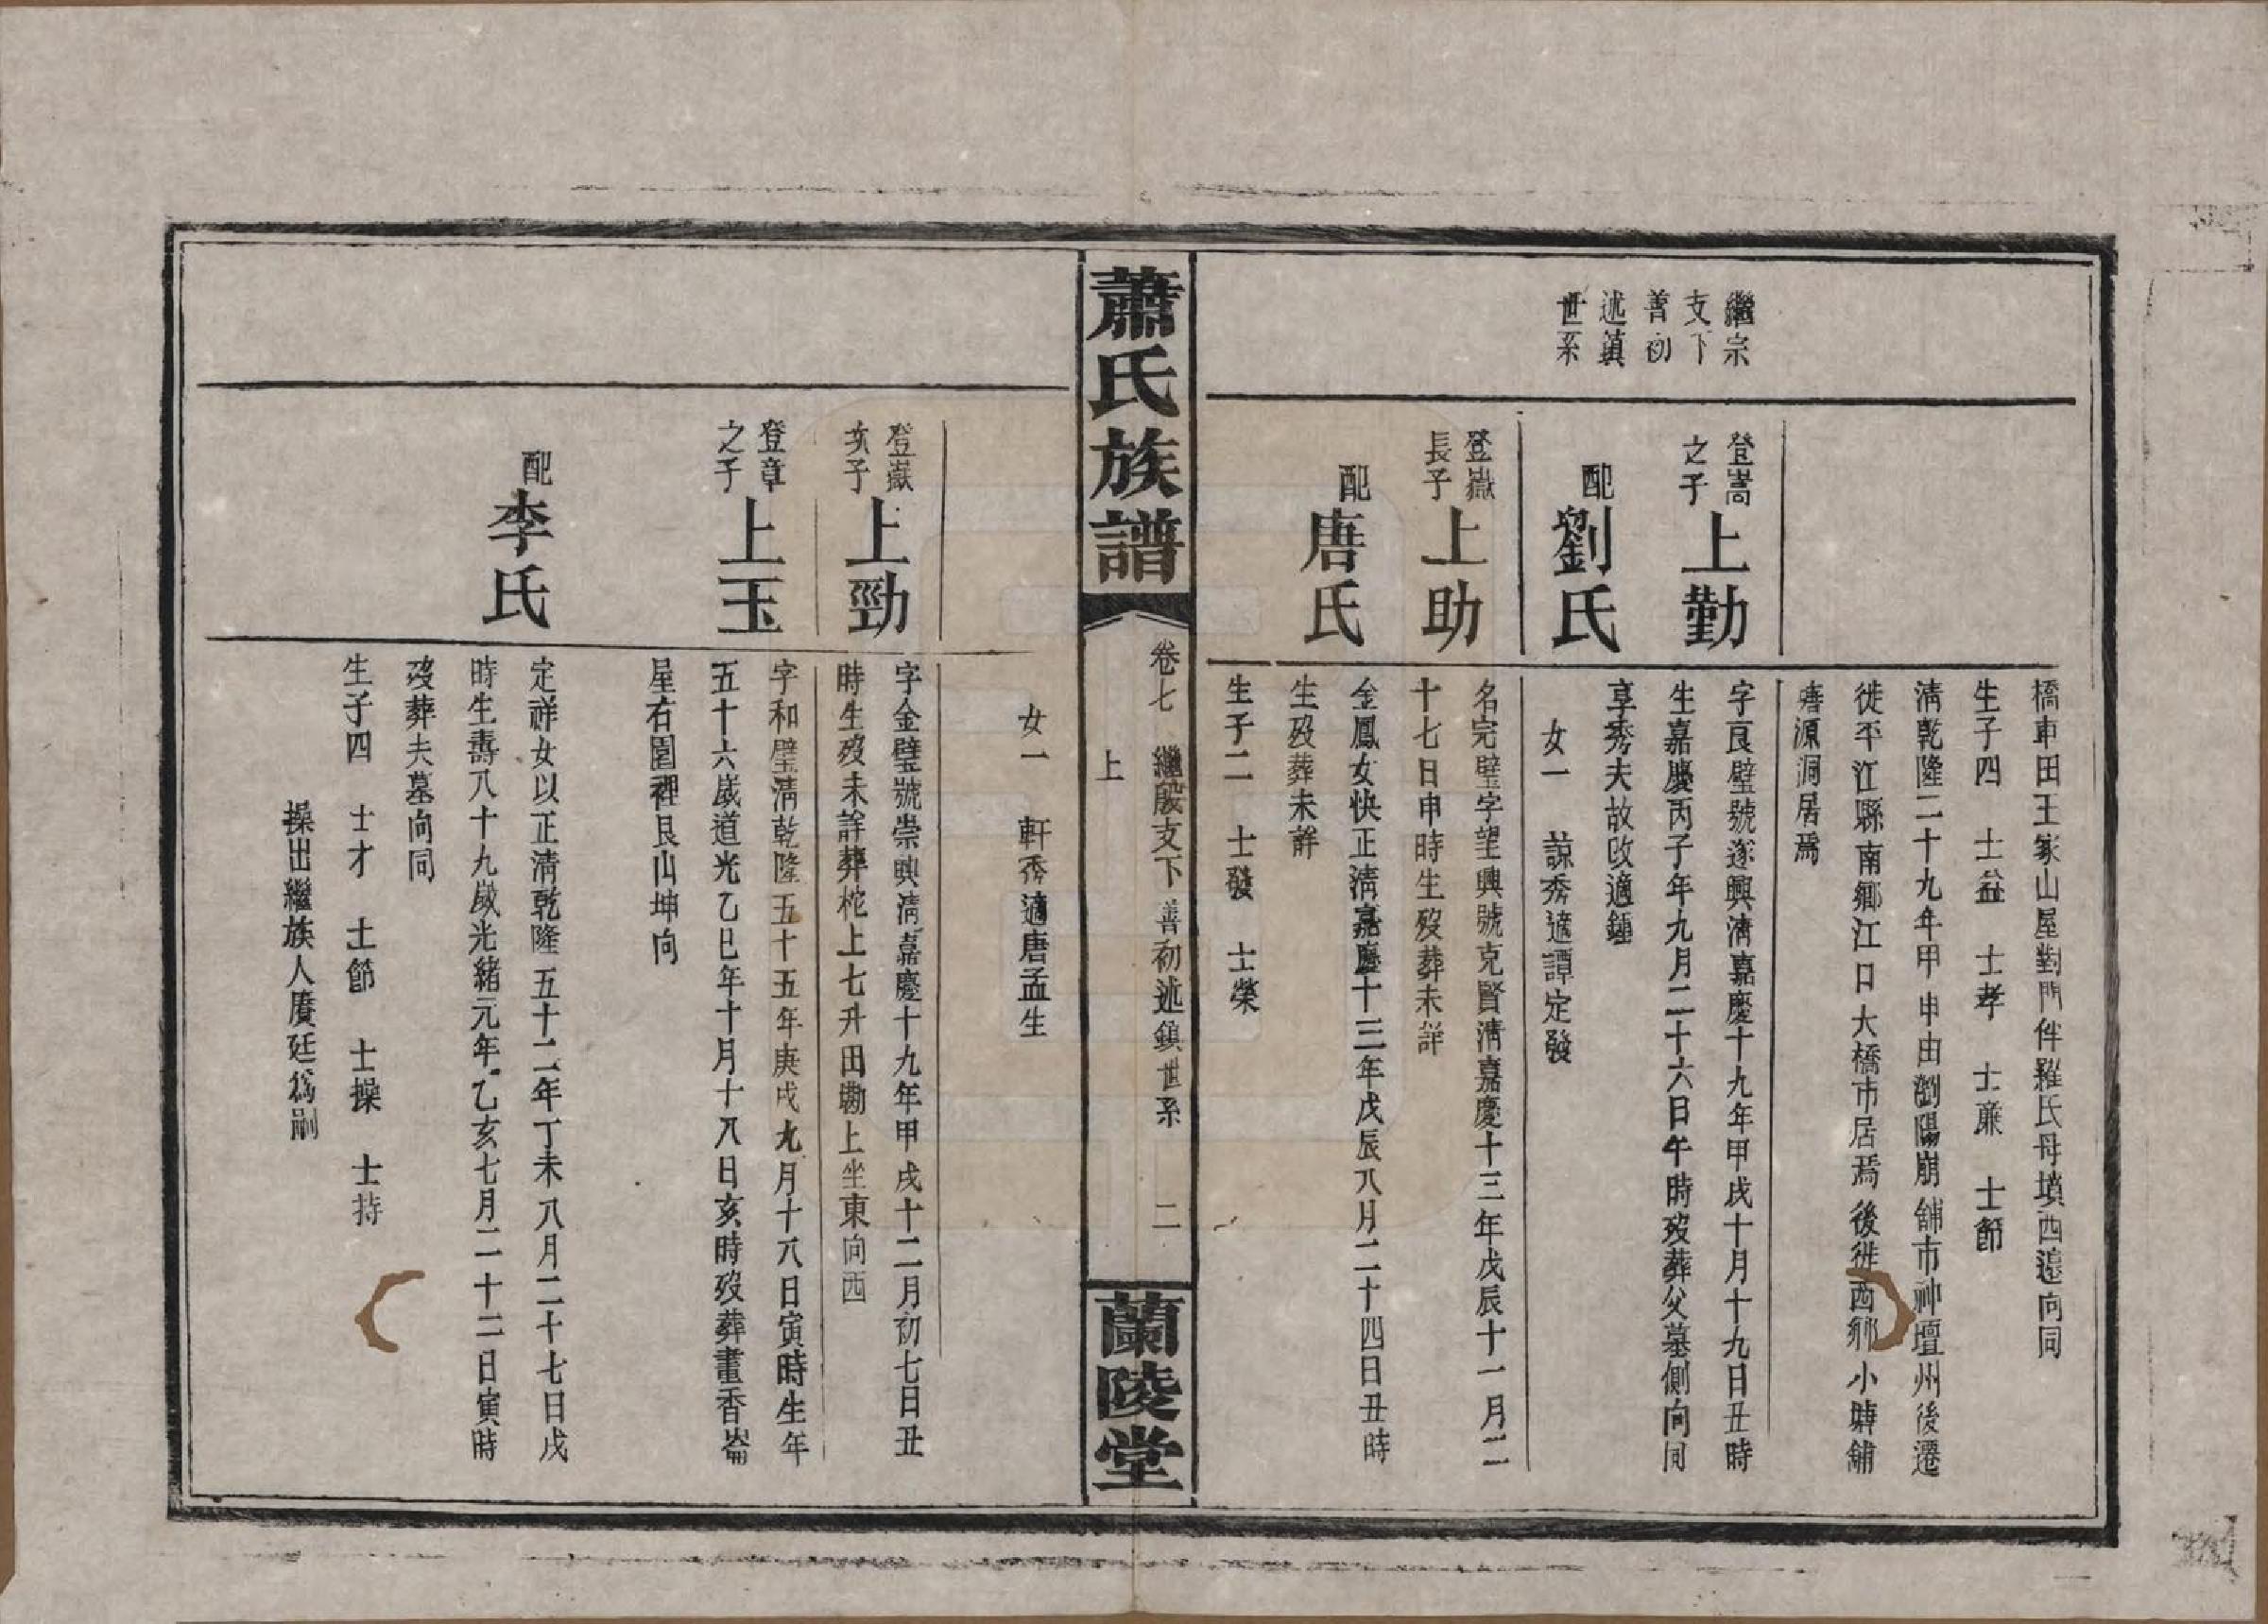 繼宗
支下
善初
述鎮
世系
橋車田王家山屋對門件羅氏母墳西邊向同
生子四 士益 士孝 士廉 士節
清乾隆二十九年甲申由瀏陽崩舖市神壇州後遷
徙平江縣南鄉江口大橋市居焉後徙西鄉小塘舖
塘源洞居焉
登嵩
之子
上勤
字良璧號遂興清嘉慶十九年甲戌十月十九日丑時
生嘉慶丙子年九月二十六日午時歿葬父墓側向同
配劉氏
享秀夫故改適鍾
女一 諒秀適譚定發
登嶽
長子
上助
名完璧字望興號克賢清嘉慶十三年戊辰十一月二
十七日申時生歿葬未詳
配唐氏
金鳳女快正清嘉慶十三年戊辰八月二十四日丑時
生歿葬未詳
生子二 士發 士榮
蕭氏族譜
卷七 繼殷支下 善初述鎮世系 二
上
蘭陵堂
女一 軒秀適唐孟生
登嶽
次子
上勁
字金璧號崇興清嘉慶十九年甲戌十二月初七日丑
時生歿未詳葬柁上七升田塝上坐東向西
登章
之子
上玉
字和璧清乾隆五十五年庚戌九月十八日寅時生年
五十六歲道光乙巳年十月十八日亥時歿葬畫香崙
屋右園裡艮山坤向
配李氏
定祥女以正清乾隆五十二年丁未八月二十七日戌
時生壽八十九歲光緒元年乙亥七月二十二日寅時
歿葬夫墓向同
生子四 士才 士節 士操 士持
操出繼族人賡廷為嗣